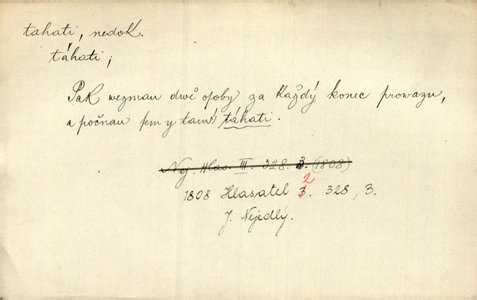 tahati, nedok.
táhati;
Pak wezmau dwě osoby za každý konec prowazu,
a počnau sem y tam táhati.
Nej. Hlas. III. 328. 3. (1808)
1808 Hlasatel 3. 2 328, 3.
J. Nejedlý.